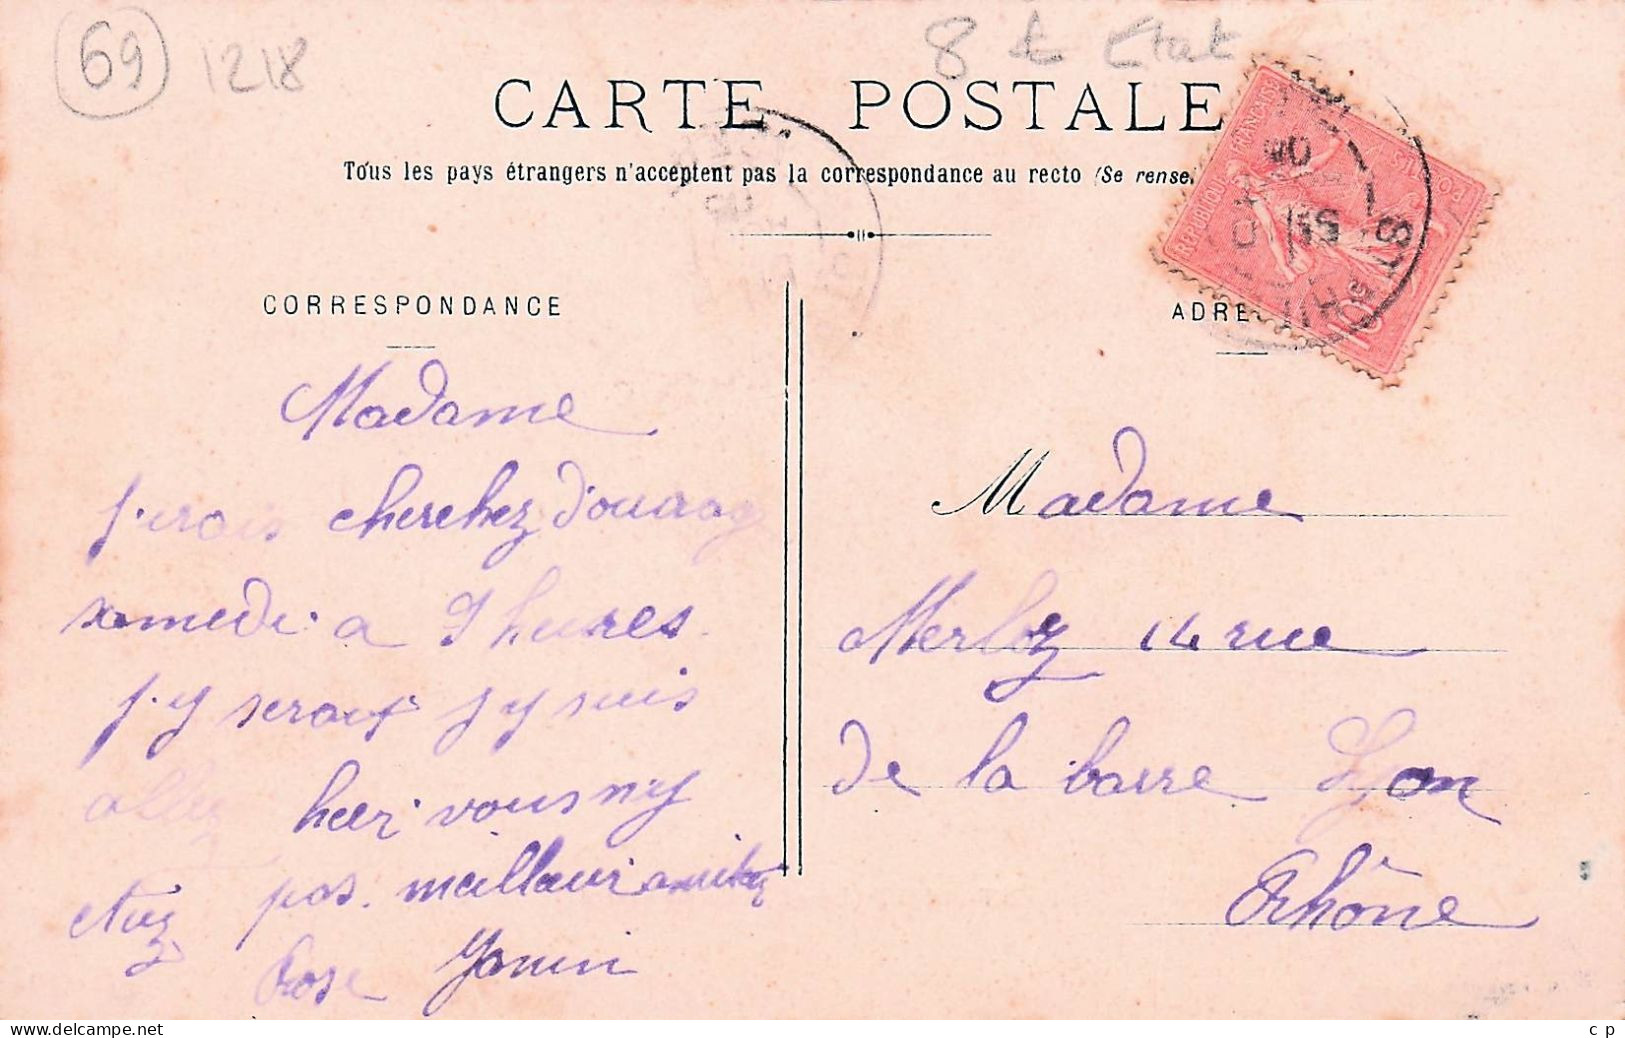 69 1218
8 t Etat
CARTE POSTALE
Tous les pays étrangers n'acceptent pas la correspondance au recto (Se rense
REPUBLIQUE FRANÇAISE
POSTES
10
CORRESPONDANCE
ADRE
Madame
j'irais cherchez
samedi a 9 heures
j'y serais j'y suis
allez hier vous n'y
etiez pas. meilleur amitiez
Rose Yanin
Madame
Merloz 14 rue
de la barre Lyon
Rhône